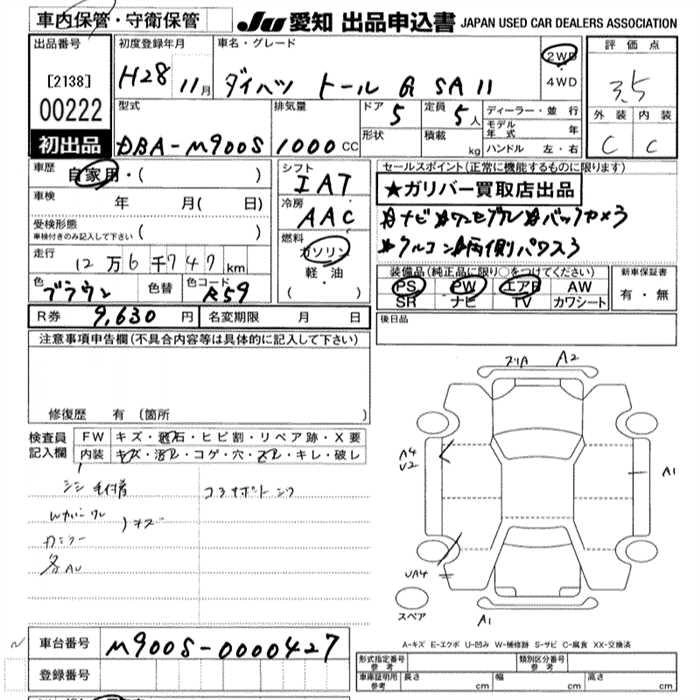 車内保管・守衛保管
JU 愛知 出品申込書 JAPAN USED CAR DEALERS ASSOCIATION
出品番号
[2138]
00222
初出品
初度登録年月
H28 11月
車名・グレード
ダイハツ トール G SA II
2WD
4WD
評価点
3.5
外装 内装
C C
型式
DBA-M900S
排気量
1000 CC
ドア 5
形状
定員 5人
積載 kg
ディーラー・並行
モデル年式 年
ハンドル 左・右
車歴
自家用・( )
車検 年 月( 日)
受検形態
車検付きのみ記入して下さい ( )
走行
12万6千747km
色 ブラウン
色替
色コード R59
シフト
IAT
冷房
AAC
燃料
ガソリン
軽・油
( ・ )
セールスポイント(正常に機能するものに限ります)
★ガリバー買取店出品
装備品(純正品に限り○をつけてください)
PS PW エアB AW
SR ナビ TV カワシート
新車保証書
有・無
R券 9,630円
名変期限 月 日
後日品
注意事項申告欄(不具合内容等は具体的に記入して下さい)
修復歴 有 (箇所 )
検査員記入欄
FW キズ・飛石・ヒビ割・リペア跡・X要
内装 キズ・汚レ・コゲ・穴・スレ・キレ・破レ
A2
A4
U2
A1
UA4
A1
スペア
A-キズ E-エクボ U-凹み W-補修跡 S-サビ C-腐食 XX-交換済
車台番号 M900S-0000427
登録番号
形式指定番号 参考
類別区分番号 参考
車庫証明用 参考 長さ cm 幅 cm 高さ cm